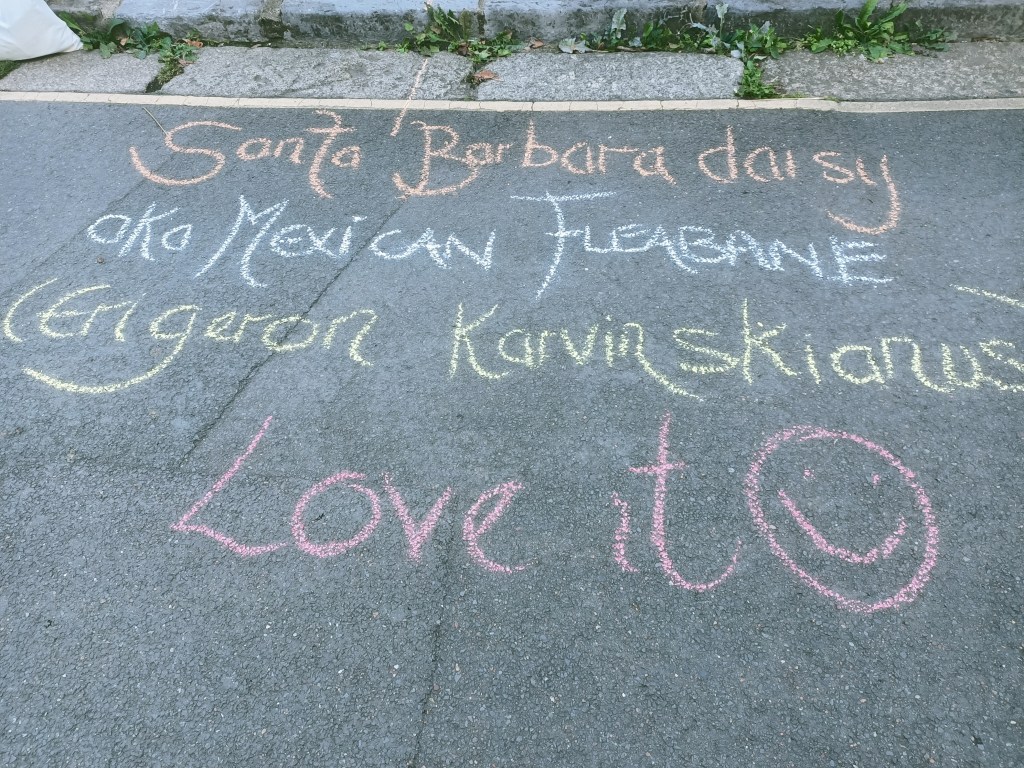 Santa Barbara daisy
aka Mexican FLEABANE
(Erigeron Karvinskianus
Love it